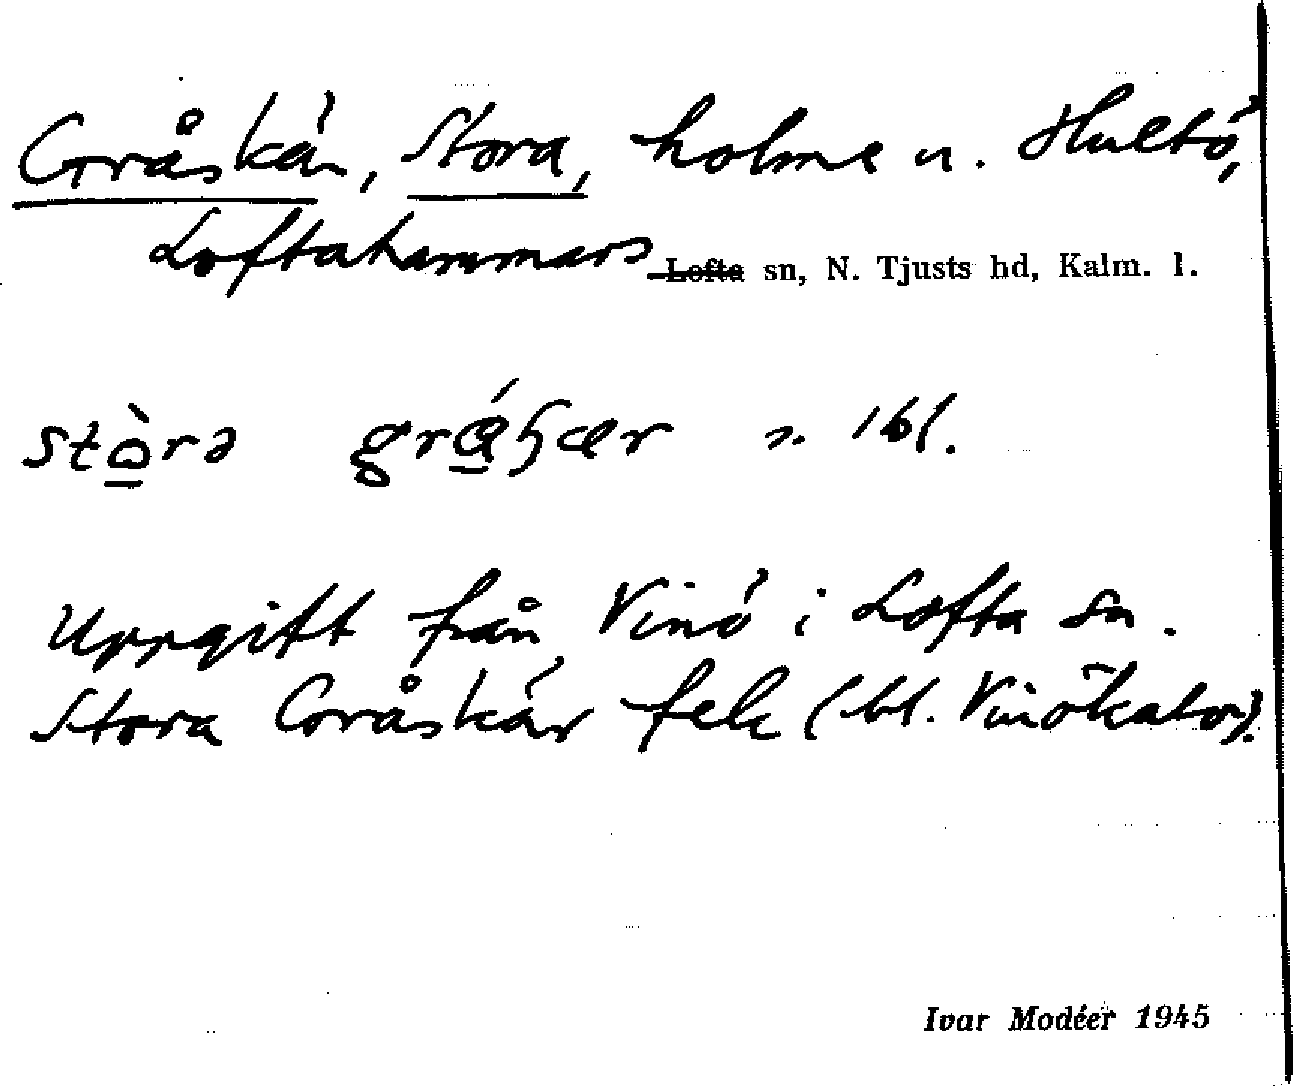 Gråskär, Stora, holme n. Hultö,
Loftahammars Lofta sn, N. Tjusts hd, Kalm. l.
Uppgift från Vinö i Lofta sn.
Stora Gråskär fek (bl. Vinökator).
Ivar Modéer 1945